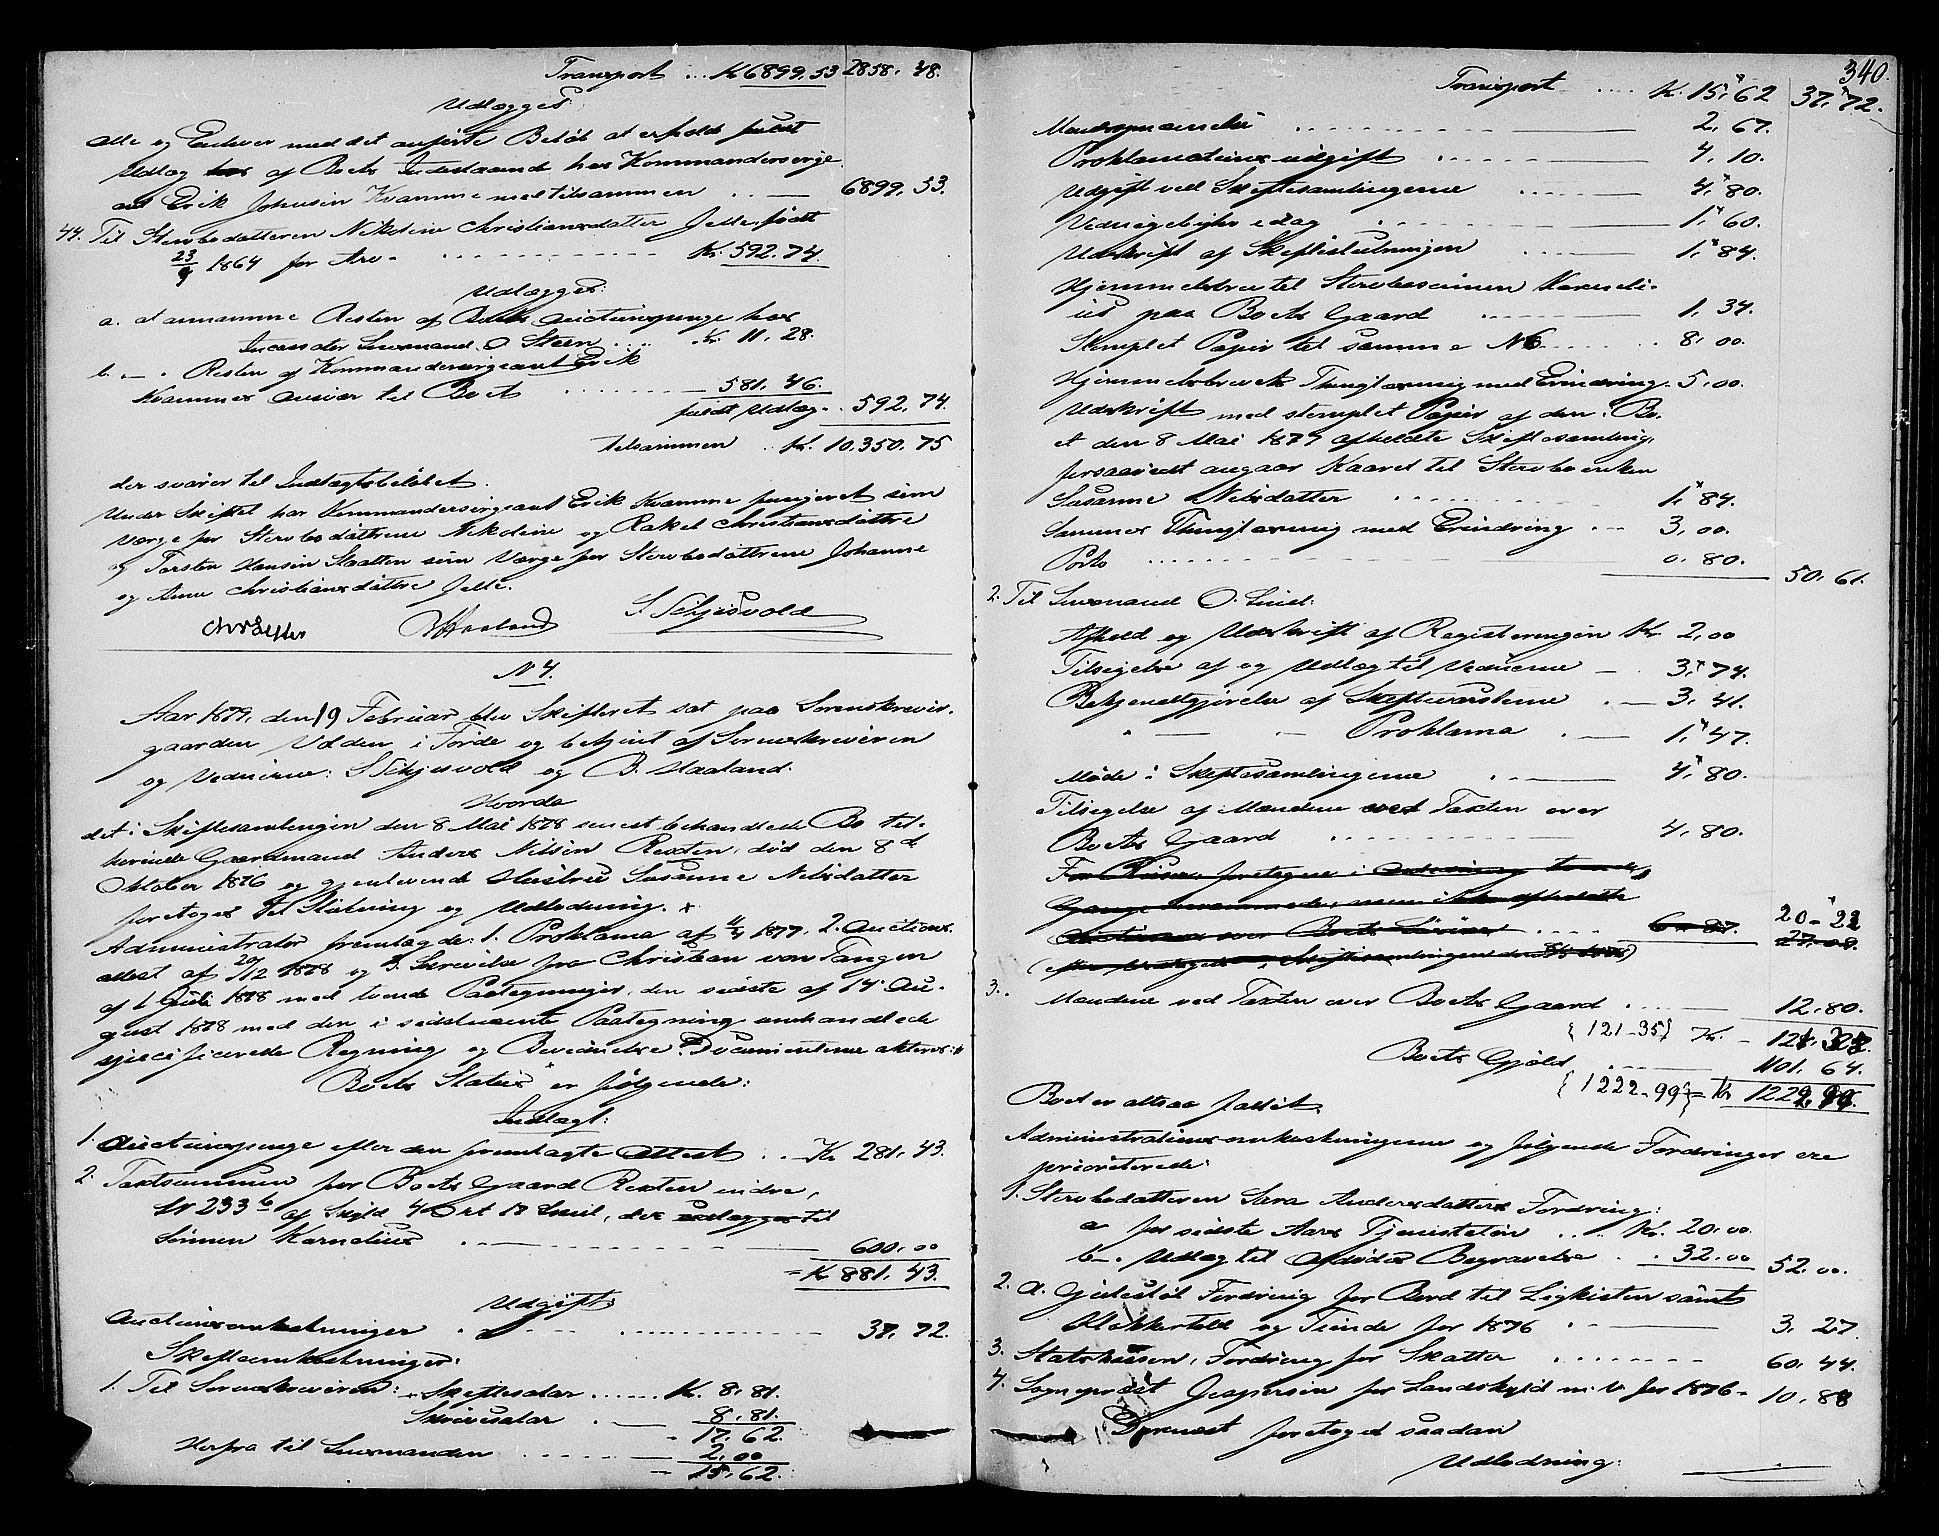 Transport ... Kr 6899,53 2858. 48.
Udlægges:
Alle og Enhver med det anførte Beløb at erholde fuldt
Udlæg af Boets Indestaaende hos Kommandersergeant
Erik Johnsen Kvamme med tilsammen ... 6899,53.
44. Til Sterbodatteren Nikoline Christiansdatter Jelle, født
23/9 1864 for Arv ... Kr. 592.74.
Udlægges:
a. at annamme Resten af Boets Auctionspenge hos
Lensmand O. Steen ... Kr. 11.28.
b. — Resten af Kommandersergeant Erik
Kvammes Ansvar til Boet ... 581.46.
fuldt Udlæg . 592.74.
tilsammen . Kr. 10.350.75
der svarer til Indtægtsbeløbet.
Under Skiftet har Kommandersergeant Erik Kvamme fungeret som
Værge for Sterbodøttrene Nikoline og Rakel Christiansdøttre
og Torsten Hansen Staatten som Værge for Sterbodøttrene Johanne
og Anne Christiansdøttre Jelle.
B Haaland S. Schjesvold
N 4.
Aar 1879, den 19 Februar blev Skifteret sat paa Sorenskriver-
gaarden Ulden i Førde og betjent af Sorenskriveren
og Vidnerne: S Schjesvold og B. Haaland.
Hvorda
det i Skiftesamlingen den 8 Mai 1878 senest behandlede Bo til-
hørende Gaardmand Anders Nilsen Rexten, død den 8de
Oktober 1876 og gjenlevende Hustru Susanne Nilsdatter
foretoges til Slutning og Udlodning.
Administrator fremlagde: 1. Proklama af 11/4 1877, 2. Auctions-
attest af 20/12 1878 og 3. Skrivelse fra Christian von Tangen
af 1 Juli 1878 med tvende Paategninger, den sidste af 14 Au-
gust 1878 med den i sidstnævnte Paategning omhandlede
specificerede Regning og Bevidnelse. Documenterne akteres.
Boets Status er følgende:
Indtægt:
1. Auctionspenge efter den fremlagte Attest .. Kr 281.43.
2. Taxtsummen for Boets Gaard Rexten indre,
Nr 233b af Skyld 4 Ort 18 Skil, der udlægges til
Sønnen Kornelius ... 600.00
= Kr 881,43.
Udgift:
Auctionsomkostninger ... 37.72.
Skifteomkostninger:
1. Til Sorenskriveren: Skiftesalar ... Kr. 8.81.
Skriversalar ... 8.81.
17.62.
Herfra til Lensmanden ... 2.00
15.62.
340.
Transport .... Kr. 15.62 37.72.
... 2.67.
Proklamations udgift ... 4.10.
Udgift ved Skiftesamlingerne ... 4.80.
Vidnegebyhr idag ... 1.60.
Udskrift af Skifteslutningen ... 1.84.
Hjemmelsbrev til Sterbosønnen Korneli-
us paa Boets Gaard ... 1.34.
Stemplet Papir til samme N 6 ... 8.00.
Hjemmelsbrevets Thinglæsning med Erindring . 5.00.
Udskrift med stemplet Papir af den i Bo-
et den 8 Mai 1877 afholdte Skiftesamling,
forsaavidt angaar Kaaret til Sterboenken
Susanne Nilsdatter ... 1.84.
Sammes Thinglæsning med Erindring ... 3.00.
Porto ... 0.80. 50.61.
2. Til Lensmand O. Lind:
Afhold og Udskrift af Registreringen Kr. 2.00
Tilsigelse af og Udlæg til Vidnerne — 3.74.
Bekjendtgjørelse af Skiftevarslerne . — 3.41.
" — " — Proklama . — 1.47.
Møde i Skiftesamlingerne . — 4.80.
Tilsigelse af Mændene ved Taxten over
Boets Gaard ... 4.80.
20-22
3. Mændene ved Taxten over Boets Gaard ... 12.80.
{121-35} Kr.
Boets Gjæld ... 1101.64.
{1222-99} = Kr
Boet er altsaa fallit.
Administrationsomkostningerne og følgende Fordringer ere
prioriterede:
1. Sterbodatteren Sara Andersdatters Fordring:
a for sidste Aars Tjenesteløn ... Kr. 20.00
b — Udlæg til Afdødes Begravelse . . 32.00 52.00.
2. A. Gjelsteds Fordring for Bord til Ligkisten samt
Klokkertold og Tiende for 1876 ... 3.27
3. Statskassen, Fordring for Skatter ... 60.44.
4. Sogneprest Jespersen for Landskyld m. v. for 1876 - 10.88
Dernæst foretoges saadan
Udlodning: